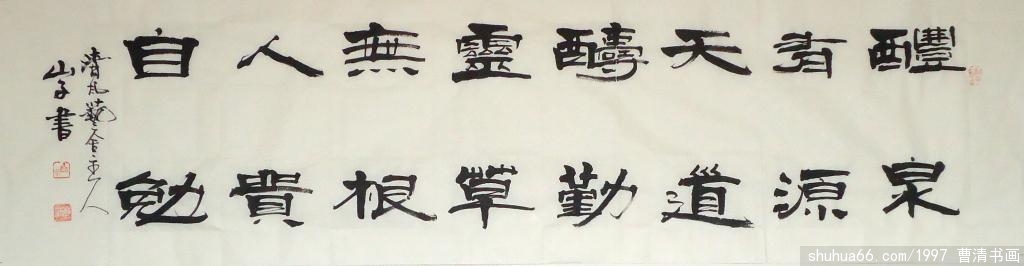 醴泉
有源
天道
醻勤
靈草
無根
人貴
自勉
清凡藝舍主人
山子書
shuhua66.com/1997 曹清书画